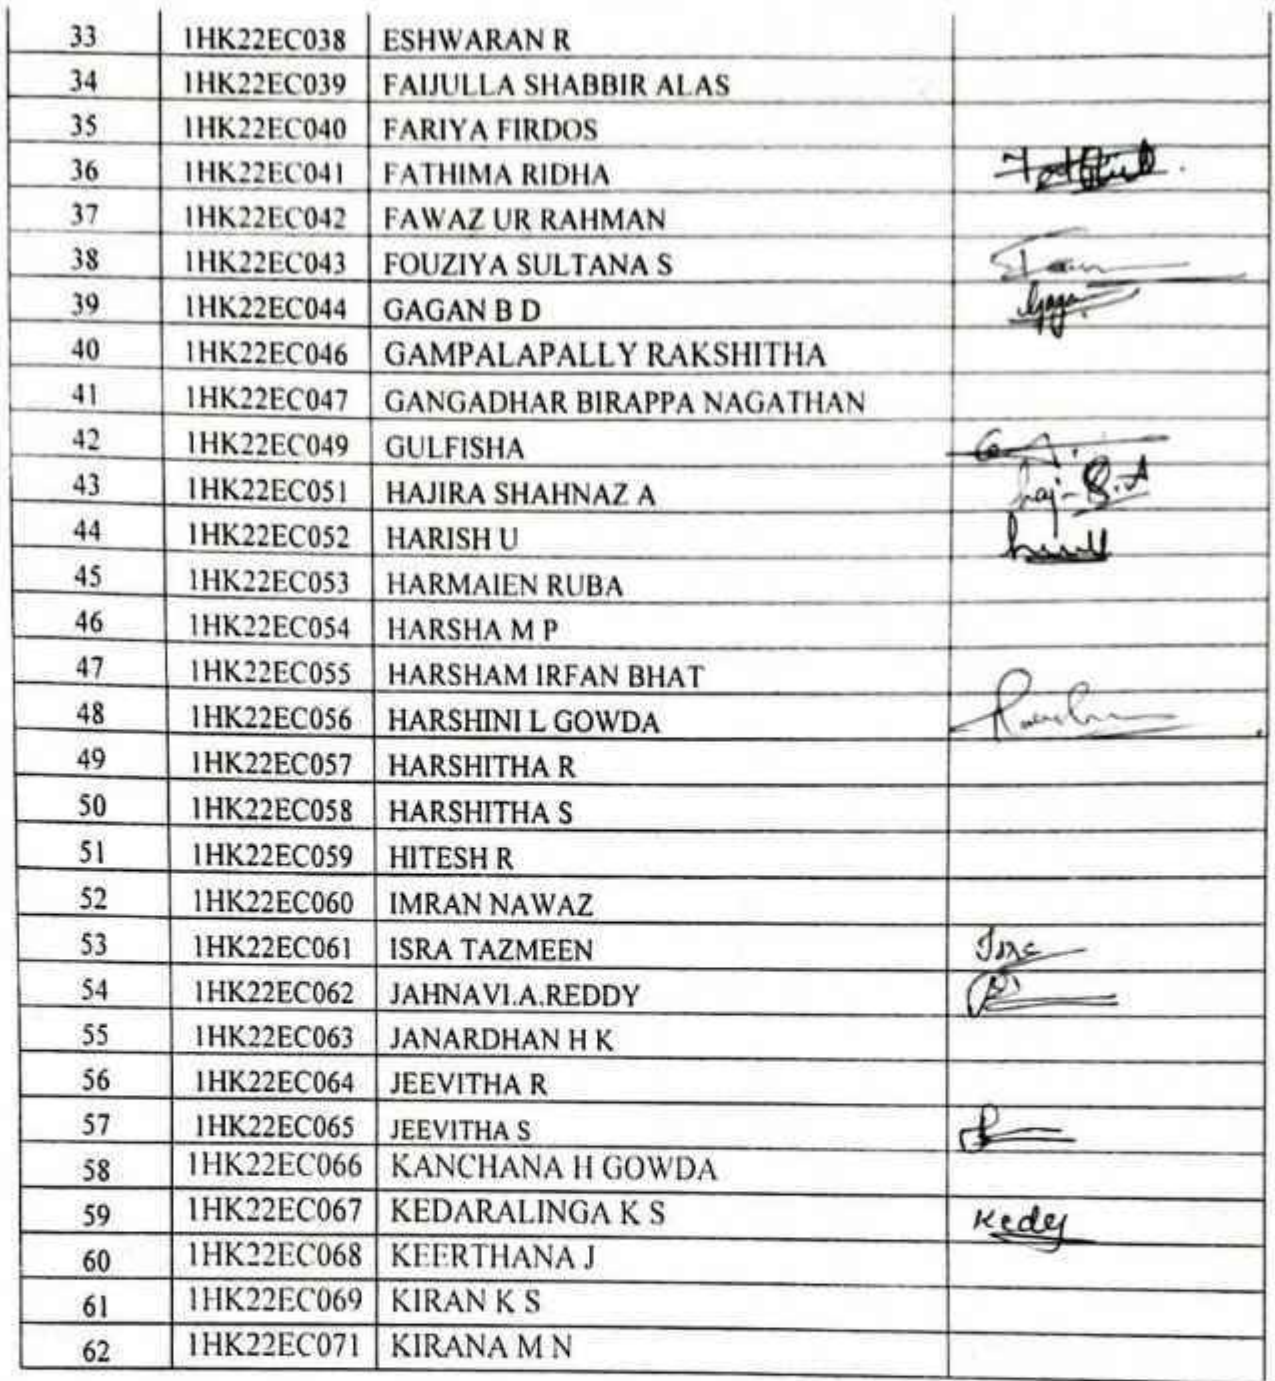 33 1HK22EC038 ESHWARAN R
34 1HK22EC039 FAIJULLA SHABBIR ALAS
35 1HK22EC040 FARIYA FIRDOS
36 1HK22EC041 FATHIMA RIDHA
37 1HK22EC042 FAWAZ UR RAHMAN
38 1HK22EC043 FOUZIYA SULTANA S
39 1HK22EC044 GAGAN B D
40 1HK22EC046 GAMPALAPALLY RAKSHITHA
41 1HK22EC047 GANGADHAR BIRAPPA NAGATHAN
42 1HK22EC049 GULFISHA
43 1HK22EC051 HAJIRA SHAHNAZ A
44 1HK22EC052 HARISH U
45 1HK22EC053 HARMAIEN RUBA
46 1HK22EC054 HARSHA M P
47 1HK22EC055 HARSHAM IRFAN BHAT
48 1HK22EC056 HARSHINI L GOWDA
49 1HK22EC057 HARSHITHA R
50 1HK22EC058 HARSHITHA S
51 1HK22EC059 HITESH R
52 1HK22EC060 IMRAN NAWAZ
53 1HK22EC061 ISRA TAZMEEN
54 1HK22EC062 JAHNAVI.A.REDDY
55 1HK22EC063 JANARDHAN H K
56 1HK22EC064 JEEVITHA R
57 1HK22EC065 JEEVITHA S
58 1HK22EC066 KANCHANA H GOWDA
59 1HK22EC067 KEDARALINGA K S
60 1HK22EC068 KEERTHANA J
61 1HK22EC069 KIRAN K S
62 1HK22EC071 KIRANA M N